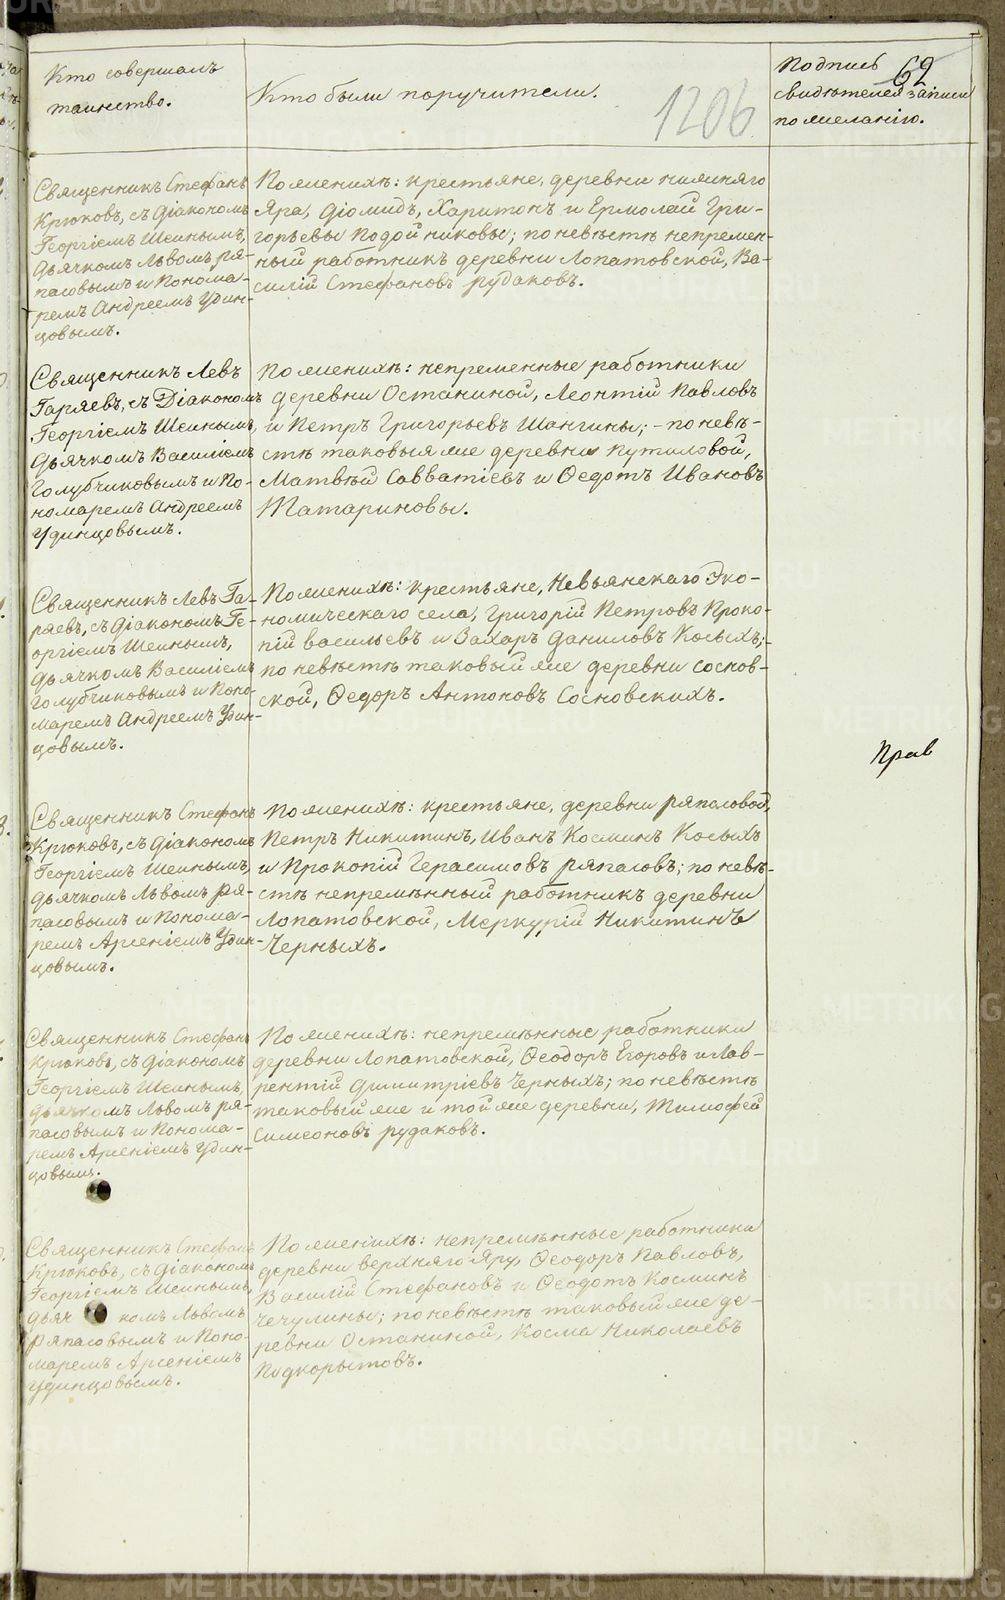 62
1206
Кто совершалъ
таинство.
Кто были поручители.
Подпись
свидѣтелей записи
по желанію.
Священникъ Стефанъ
Крюковъ, съ діакономъ
Георгіемъ Шеинымъ,
дьячкомъ Львомъ ря-
пасовымъ и Понома-
ремъ Андреемъ Удин-
цовымъ.
По женихѣ: крестьяне, деревни нижняго
Яра, Діомидъ, Харитонъ и Ермолай Гри-
горьевы Подойниковы; по невѣстѣ непремен-
ный работникъ деревни Лопатовской, Ва-
силій Стефановъ рудаковъ.
Священникъ Левъ
Гаряевъ, съ Діакономъ
Георгіемъ Шеинымъ,
дьячкомъ Василіемъ
Голубчиковымъ и По-
номаремъ Андреемъ
Удинцовымъ.
По женихѣ: непременные работники
деревни Останиной, Леонтій Павловъ
и Петръ Григорьевъ Шангины; - по невѣ-
стѣ таковыя же деревни Путиловой,
Матвѣй Савватіевъ и Ѳедотъ Ивановъ
Татариновы.
Священникъ Левъ Га-
ряевъ, съ діакономъ Ге-
оргіемъ Шеинымъ,
дьячкомъ Василіемъ
Голубчиковымъ и Поно-
маремъ Андреемъ Удин-
цовымъ.
По женихѣ: крестьяне, Невьянскаго Эко-
номическаго села, Григорій Петровъ Проко-
пій васильевъ и Захаръ даниловъ Косыхъ;-
по невѣстѣ таковый же деревни соснов-
ской, Ѳедоръ Антоновъ Сосновскихъ.
Прав
Священникъ Стефанъ
Крюковъ, съ діакономъ
Георгіемъ Шеинымъ,
дьячкомъ Львомъ ря-
пасовымъ и Понома-
ремъ Арсеніемъ Удин-
цовымъ.
По женихѣ: крестьяне, деревни ряполовой,
Петръ Никитинъ, Иванъ Косминъ Косыхъ
и Прокопій Герасимовъ ряпасовъ; по невѣ-
стѣ непремѣнный работникъ деревни
Лопатовской, Меркурій Никитинъ
Черныхъ.
Священникъ Стефанъ
Крюковъ, съ діакономъ
Георгіемъ Шеинымъ,
дьячкомъ Львомъ ря-
пасовымъ и Понома-
ремъ Арсеніемъ Удин-
цовымъ.
По женихѣ: непремѣнные работники
деревни Лопатовской, Ѳеодоръ Егоровъ и Лав-
рентій димитріевъ Черныхъ; по невѣстѣ
таковый же и той же деревни, Тимофей
Симеоновъ рудаковъ.
Священникъ Стефанъ
Крюковъ, съ діакономъ
Георгіемъ Шеинымъ,
дьячкомъ Львомъ
Ряпасовымъ и Поно-
маремъ Арсеніемъ
Удинцовымъ.
По женихѣ: непремѣнные работники
деревни верхняго Яру, Ѳеодоръ Павловъ,
Василій Стефановъ и Ѳеодотъ Косминъ
Чечулины; по невѣстѣ таковый же де-
ревни Останиной, Косма Николаевъ
Подкорытовъ.
METRIKI.GASO-URAL.RU